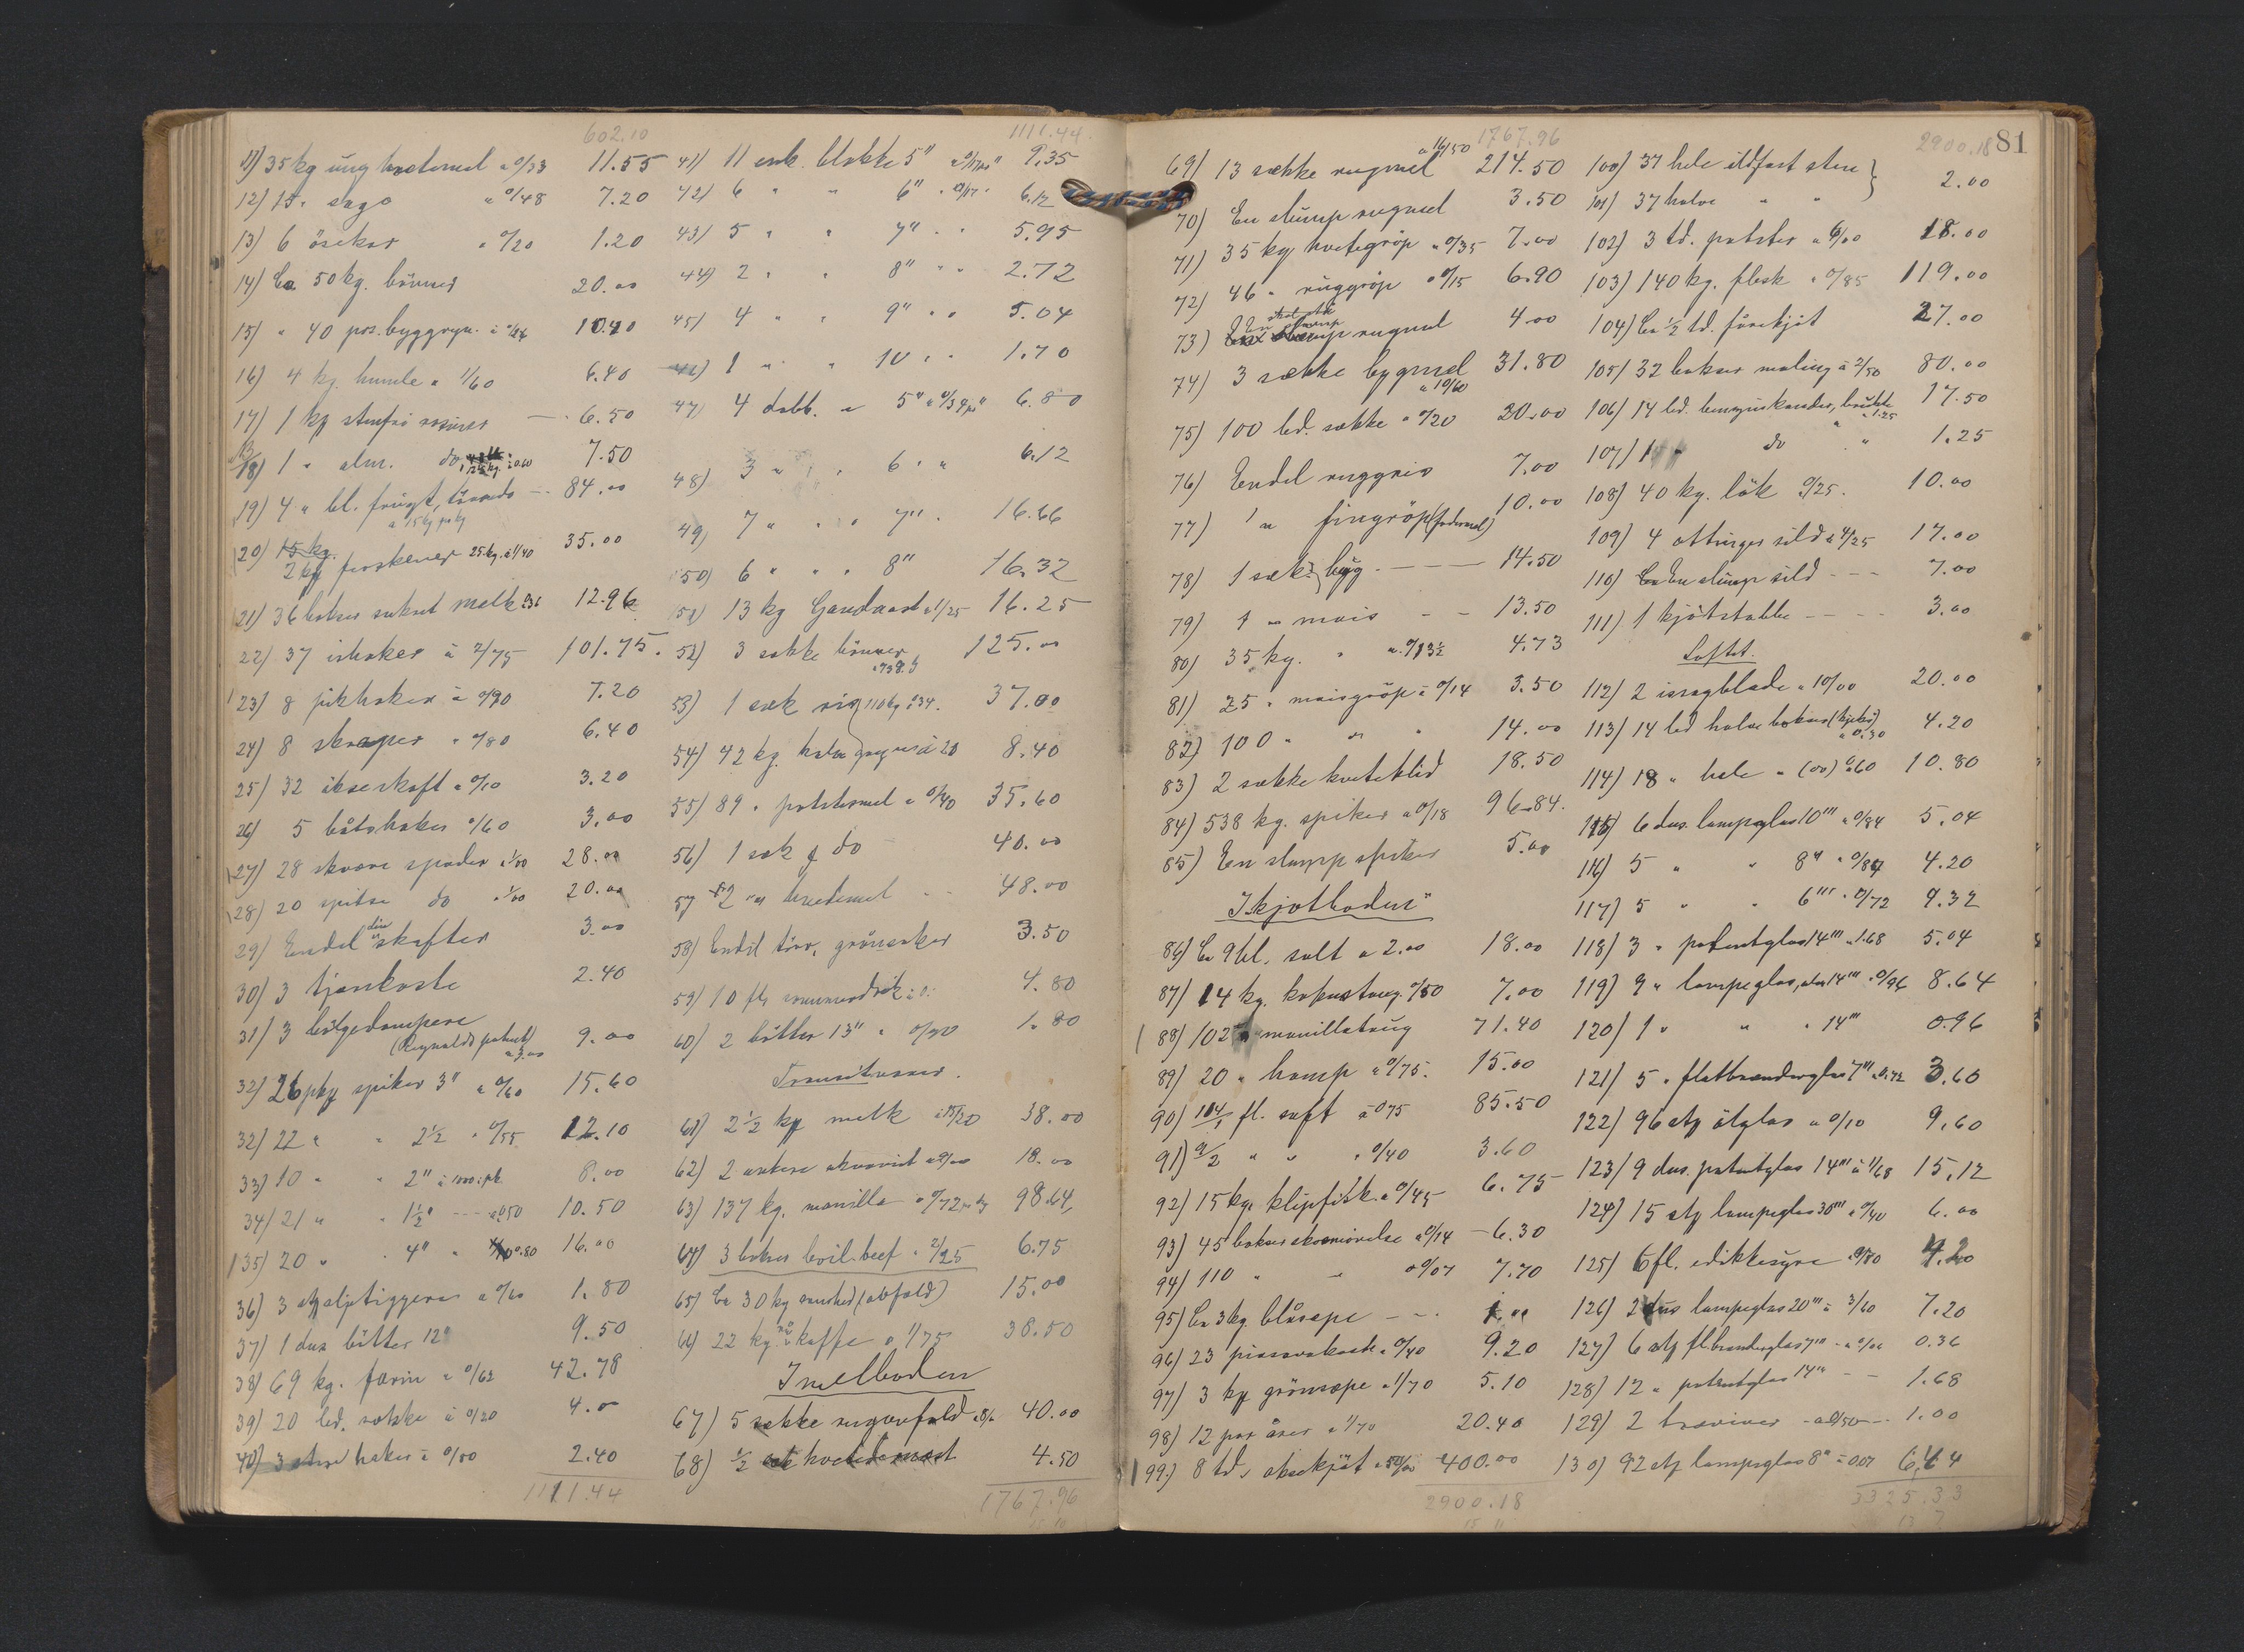 602.10
11) 35 kg ung hvetemel a 0/33 11.55
12) 15 " sago a 0/48 7.20
13) 6 ösekar a 0/20 1.20
14) Ca 50 kg. bönner 20.00
15) " 40 pos. byggryn. à 0/26 10.40
16) 4 kg. humle a 1/60 6.40
17) 1 ks stenfri rosiner — 6.50
18) 1 " alm. do 7.50
19) 4 " bl. frugt, törrede — 84.00
a 15 kg pr kg
20) 15 kg.
2 ks ferskener 25 kg. à 1/40 35.00
21) 36 bokser sukret melk 0.36 12.96
22) 37 ishaker à 2/75 101.75
23) 8 pikhaker à 0/90 7.20
24) 8 skraper a 0/80 6.40
25) 32 økseskaft a 0/10 3.20
26) 5 båtshaker 0/60 3.00
27) 28 skvære spader a 1/00 28.00
28) 20 spitse do a 1/00 20.00
29) Endel div skafter 3.00
30) 3 tjærekoste 2.40
31) 3 bölgedampere
(Reynolds patent) a 3.00 9.00
32) 26 pkg spiker 3" a 0/60 15.60
32) 22 " " 2½ " 0/55 12.10
33) 10 " " 2" à 1000 i pk. 8.00
34) 21 " " 1½" --- a 0.50 10.50
35) 20 " " 4" " 0.80 16.00
36) 3 stg alptiggere a 0/60 1.80
37) 1 dus bötter 12" 9.50
38) 69 kg. farin a 0/62 42.78
39) 20 led. sække à 0/20 4.0
40) 3 haker à 0/80 2.40
1111.44
1111.44.
41) 11 enk. blokke 5" a 0/17 pr " 9.35
42) 6 " " 6" " 0/17 " 6.12
43) 5 " " 7" " " 5.95
44) 2 " " 8" " " 2.72
45) 4 " " 9" " " 5.04
46) 1 " " 10 " " 1.70
47) 4 dobb. " 5" a 0/34 pr " 6.80
48) 3 " " " 6 " " 6.12
49) 7 " " " 7" " 16.66
50) 6 " " " 8" 16.32
51) 13 kg Gaudaost a 1/25 16.25
52) 3 sække bönner 125.00
53) 1 sæk ris 110 kg 0.34. 37.00
54) 42 kg. hele gryn à 20 8.40
55) 89 " potetesmel a 0/40 35.60
56) 1 sæk do 40.00
57 2 " hvedemel -- 48.00
58) Endel törr. grönsaker 3.50
59) 10 fl. 4.80
60) 2 bötter 13" a 0/90 1.80
Transitvarer.
61) 2½ ks melk à 15/20 38.00
62) 2 ankere akvavit a 9/00 18.00
63) 137 kg. manilla a 0/72 pr kg 98.64
64) 3 bokser boil. beef a 2/25 6.75
65) Ca 30 kg (abfald) 15.00
66) 22 kg. kaffe a 1/75 38.50
I melboden
67) 5 sække rugavfald a 8/- 40.00
68) ½ sæk 4.50
1767.96
1767.96
69) 13 sække rugmel a 16/50 214.50
70) En slump rugmel 3.50
71) 35 kg hvetegröp a 0/35 7.00
72) 46 " ruggröp a 0/15 6.90
73) En slump rugmel 4.00
74) 3 sække bygmel a 10/60 31.80
75) 100 led. sække a 0/20 20.00
76) Endel ruggris 7.00
77) 1 " fingröp (fodermel) 10.00
78) 1 sæk byg. — 14.50
79) 1 " mais -- 13.50
80) 35 kg. " a 0/13½ 4.73
81) 25 " maisgröp à 0/14 3.50
82) 100 " " " 14.00
83) 2 sække hveteklid 18.50
84) 538 kg. spiker a 0/18 96.84.
85) En slump spiker 5.00
I kjötboden
86) Ca 9 hl. salt a 2.00 18.00
87) 14 kg. kokustaug. 0/50 7.00
88) 102 " manillataug 71.40
89) 20 " hamp a 0/75. 15.00
90) 114/1 fl. saft a 0 75 85.50
91) 9/2 " " " 0/40 3.60
92) 15 kg. klipfisk a 0/45 6.75
93) 45 bokser skosmörelse a 0/14 6.30
94) 110 " " a 0/07 7.70
95) Ca 3 kg. blåsæpe -- 1.00
96) 23 piasavakoste a 0/40 9.20
97) 3 ks grönsæpe a 1/70 5.10
98) 12 par årer a 1/70 20.40
99.) 8 td. oksekjöt a 50/00 400.00
2900.18
2900.18 81
100) 37 hele ildfast sten }
101) 37 halve " " } 2.00
102) 3 td. poteter a 6/00 18.00
103) 140 kg. flesk a 0/85 119.00
104) Ca ½ td. fårekjöt 27.00
105) 32 bokser maling à 2/50 80.00
106) 14 led. bensinkander, brukte a 1.25 17.50
107) 1 " do " 1.25
108) 40 kg. lök 0/25. 10.00
109) 4 ottinger sild à 4/25 17.00
110) En slump sild --- 7.00
111) 1 kjötstabbe ---- 3.00
Loftet.
112) 2 issagblade a 10/00 20.00
113) 14 led halve bokser (kjeks) a 0.30 4.20
114) 18 " hele " (do) 0.60 10.80
115) 6 dus. lampeglas 10''' a 0/84 5.04
116) 5 " " 8" a 0/84 4.20
117) 5 " " 6''' a 0/72 9.32
118) 3 " patentglas 14''' a 1.68 5.04
119) 9 " lampeglas, alm 14''' a 0/96 8.64
120) 1 " " " 14''' 0.96
121) 5 " flatbrænderglas 7''' a 0.72 3.60
122) 96 stg ölglas a 0/10 9.60
123) 9 dus. patentglas 14''' à 1/68 15.12
124) 15 stg lampeglas 30''' a 0/40 6.00
125) 6 fl. edikkesyre 4.20
126) 2 dus lampeglas 20''' à 3/60 7.20
127) 6 stg fl.brænderglas 7''' - a 0/06 0.36
128) 12 " patentglas 14''' -- 1.68
129) 2 træriver - a 0/50 -- 1.00
130) 92 stg lampeglas 8" à 0.07 6.44
3325.33